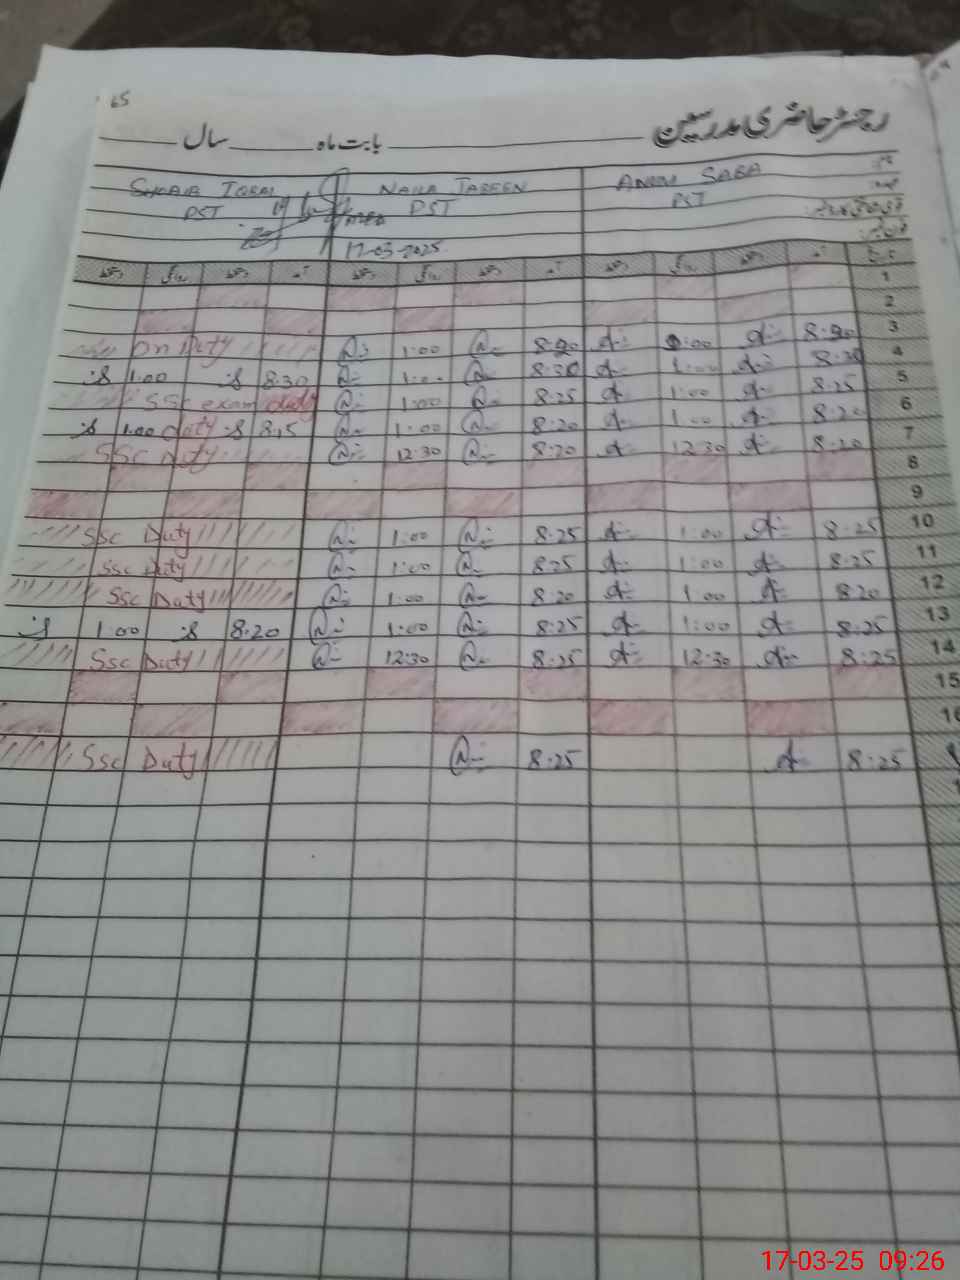 65
رجسٹر حاضری مدرسین
بابت ماہ سال
SHOAIB IQBAL NAILA JABEEN ANAM SABA
PST PST PST
17-03-2025
آمد دستخط روانگی دستخط آمد دستخط روانگی دستخط آمد دستخط روانگی دستخط تاریخ
1
2
On Duty 1:00 8:20 1:00 8:20 3
1:00 8:30 1:00 8:30 1:00 8:30 4
SSc exam duty 1:00 8:25 1:00 8:25 5
1:00 duty 8:15 1:00 8:20 1:00 8:20 6
SSC Duty 12:30 8:20 12:30 8:20 7
8
9
SSc Duty 1:00 8:25 1:00 8:25 10
SSc Duty 1:00 8:25 1:00 8:25 11
SSc Duty 1:00 8:20 1:00 8:20 12
1:00 8:20 1:00 8:25 1:00 8:25 13
SSc Duty 12:30 8:25 12:30 8:25 14
15
16
SSc Duty 8:25 8:25
17-03-25 09:26